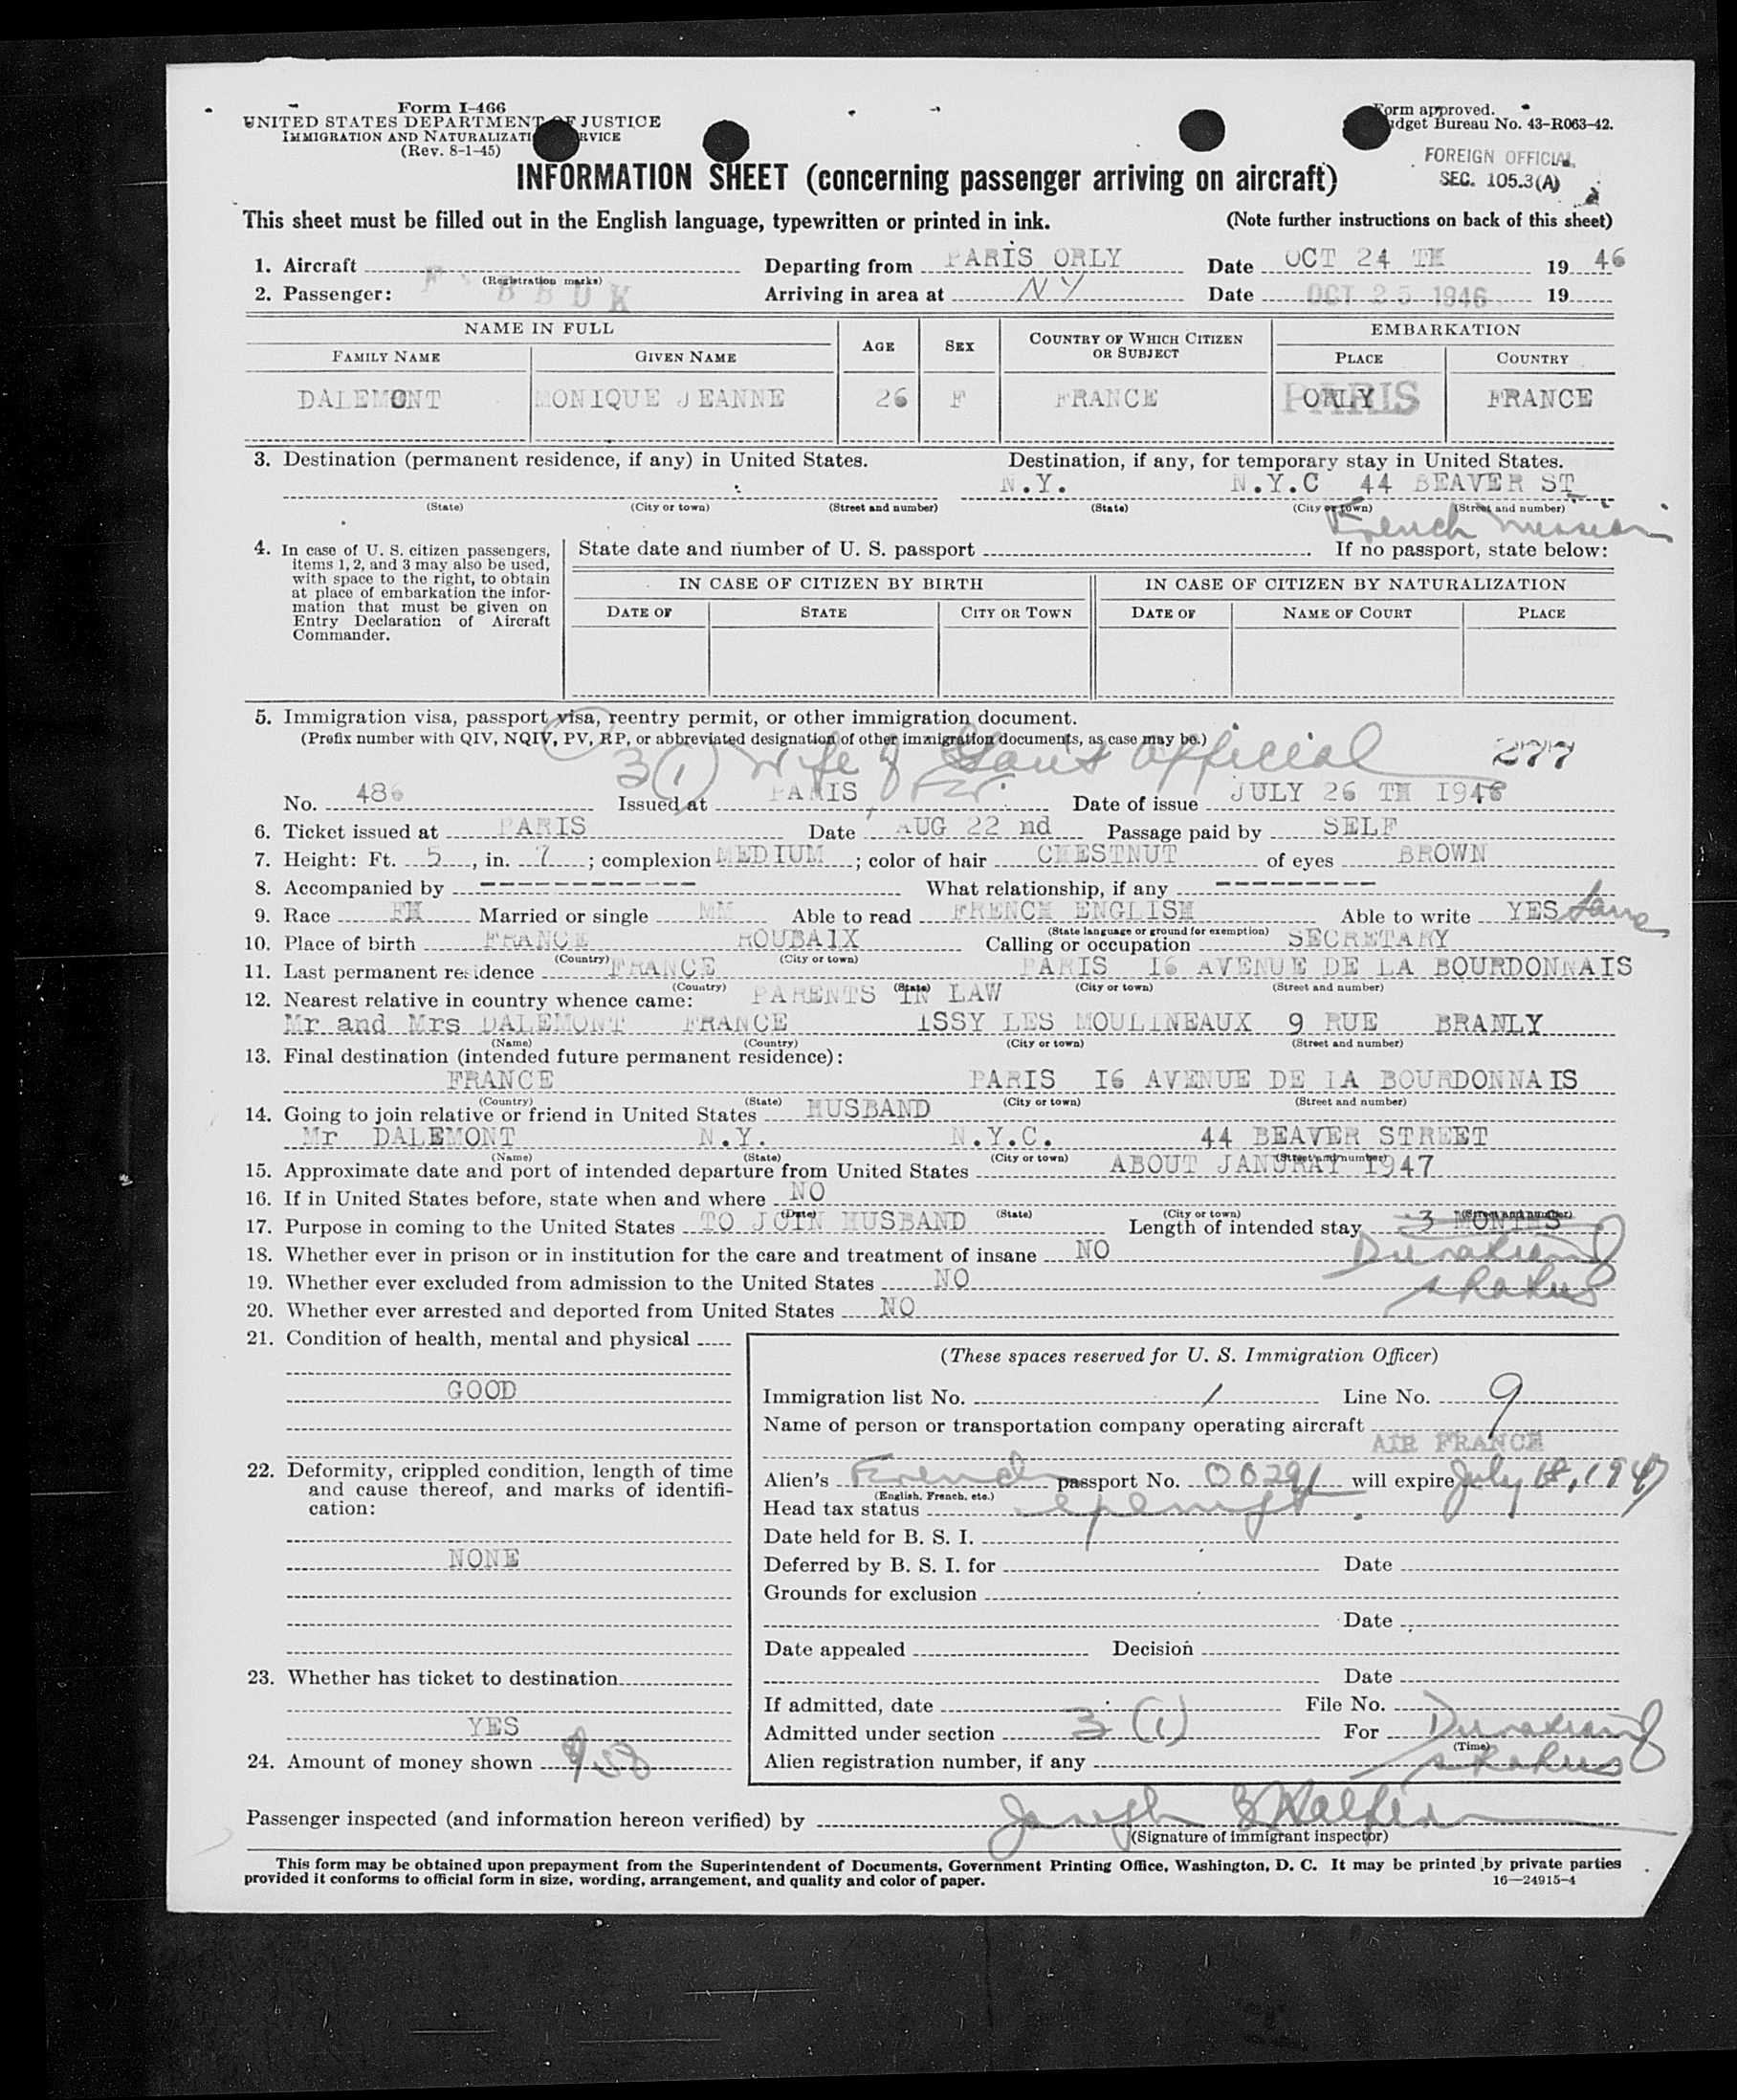 Form I-466
UNITED STATES DEPARTMENT OF JUSTICE
IMMIGRATION AND NATURALIZATION SERVICE
(Rev. 8-1-45)
Form approved.
Budget Bureau No. 43-R063-42.
FOREIGN OFFICIAL
SEC. 105.3(A)
INFORMATION SHEET (concerning passenger arriving on aircraft)
This sheet must be filled out in the English language, typewritten or printed in ink. (Note further instructions on back of this sheet)
1. Aircraft F BBDK (Registration marks) Departing from PARIS ORLY Date OCT 24 TH 19 46
2. Passenger: Arriving in area at NY Date OCT 25 1946 19
NAME IN FULL AGE SEX COUNTRY OF WHICH CITIZEN OR SUBJECT EMBARKATION
FAMILY NAME GIVEN NAME PLACE COUNTRY
DALEMONT MONIQUE JEANNE 26 F FRANCE ORLY PARIS FRANCE
3. Destination (permanent residence, if any) in United States. Destination, if any, for temporary stay in United States.
N.Y. N.Y.C 44 BEAVER ST
(State) (City or town) (Street and number) (State) (City or town) (Street and number)
French mission
4. In case of U. S. citizen passengers, items 1, 2, and 3 may also be used, with space to the right, to obtain at place of embarkation the information that must be given on Entry Declaration of Aircraft Commander.
State date and number of U. S. passport If no passport, state below:
IN CASE OF CITIZEN BY BIRTH IN CASE OF CITIZEN BY NATURALIZATION
DATE OF STATE CITY OR TOWN DATE OF NAME OF COURT PLACE
5. Immigration visa, passport visa, reentry permit, or other immigration document.
(Prefix number with QIV, NQIV, PV, RP, or abbreviated designation of other immigration documents, as case may be.)
3(1) Wife of Gov't Official 277
Fr.
No. 486 Issued at PARIS Date of issue JULY 26 TH 1946
6. Ticket issued at PARIS Date AUG 22 nd Passage paid by SELF
7. Height: Ft. 5, in. 7; complexion MEDIUM; color of hair CHESTNUT of eyes BROWN
8. Accompanied by ------------ What relationship, if any ---------
9. Race FH Married or single MM Able to read FRENCH ENGLISH Able to write YES Same
(State language or ground for exemption)
10. Place of birth FRANCE ROUBAIX Calling or occupation SECRETARY
(Country) (City or town)
11. Last permanent residence FRANCE PARIS I6 AVENUE DE LA BOURDONNAIS
(Country) (State) (City or town) (Street and number)
12. Nearest relative in country whence came: PARENTS IN LAW
Mr and Mrs DALEMONT FRANCE ISSY LES MOULINEAUX 9 RUE BRANLY
(Name) (Country) (City or town) (Street and number)
13. Final destination (intended future permanent residence):
FRANCE PARIS I6 AVENUE DE LA BOURDONNAIS
(Country) (State) (City or town) (Street and number)
14. Going to join relative or friend in United States HUSBAND
Mr DALEMONT N.Y. N.Y.C. 44 BEAVER STREET
(Name) (State) (City or town) (Street and number)
15. Approximate date and port of intended departure from United States ABOUT JANURAY 1947
16. If in United States before, state when and where NO
(Date) (State) (City or town) (Street and number)
17. Purpose in coming to the United States TO JOIN HUSBAND Length of intended stay 3 MONTHS
Duration of
status
18. Whether ever in prison or in institution for the care and treatment of insane NO
19. Whether ever excluded from admission to the United States NO
20. Whether ever arrested and deported from United States NO
21. Condition of health, mental and physical
GOOD
22. Deformity, crippled condition, length of time and cause thereof, and marks of identification:
NONE
23. Whether has ticket to destination
YES
24. Amount of money shown
(These spaces reserved for U. S. Immigration Officer)
Immigration list No. 1 Line No. 9
Name of person or transportation company operating aircraft
AIR FRANCE
Alien's French passport No. 00291 will expire July 18, 1947
(English, French, etc.)
Head tax status exempt
Date held for B. S. I.
Deferred by B. S. I. for Date
Grounds for exclusion
Date
Date appealed Decision
Date
If admitted, date File No.
Admitted under section 3 (1) For Duration of
(Time)
Alien registration number, if any status
Passenger inspected (and information hereon verified) by Joseph
(Signature of immigrant inspector)
This form may be obtained upon prepayment from the Superintendent of Documents, Government Printing Office, Washington, D. C. It may be printed by private parties
provided it conforms to official form in size, wording, arrangement, and quality and color of paper.
16—24915-4